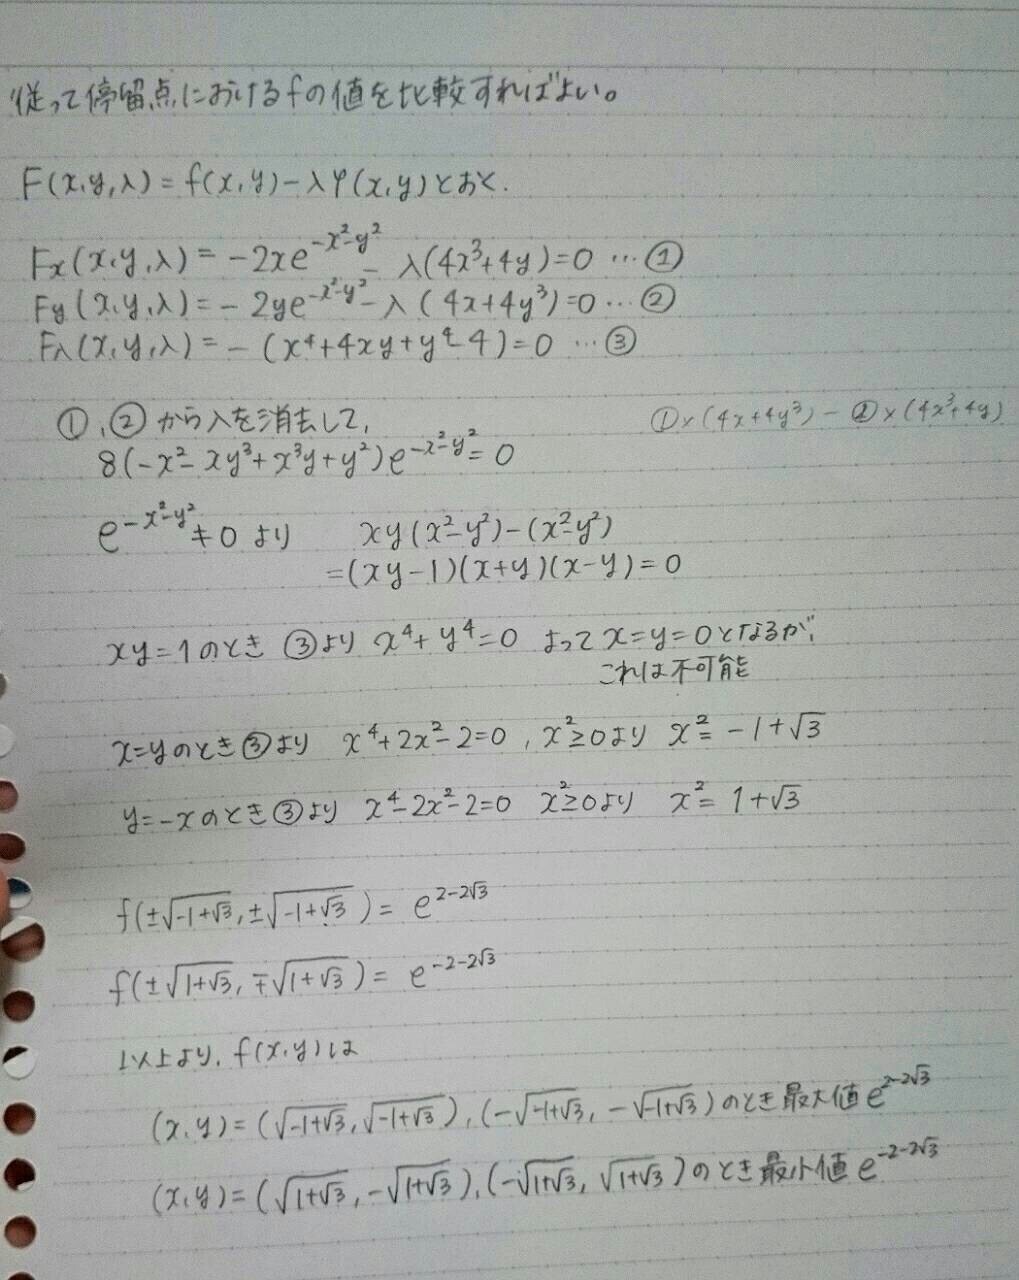 従って停留点におけるfの値を比較すればよい。
F(x,y,λ)=f(x,y)-λφ(x,y)とおく.
Fx(x,y,λ)=-2xe^{-x²-y²}-λ(4x³+4y)=0 …①
Fy(x,y,λ)=-2ye^{-x²-y²}-λ(4x+4y³)=0 …②
Fλ(x,y,λ)=-(x⁴+4xy+y⁴-4)=0 …③
①,②からλを消去して, ①×(4x+4y³)-②×(4x³+4y)
8(-x²-xy³+x³y+y²)e^{-x²-y²}=0
e^{-x²-y²}≠0より xy(x²-y²)-(x²-y²)
=(xy-1)(x+y)(x-y)=0
xy=1のとき ③より x⁴+y⁴=0 よってx=y=0となるが,
これは不可能
x=yのとき③より x⁴+2x²-2=0 , x²≥0より x²=-1+√3
y=-xのとき③より x⁴-2x²-2=0 x²≥0より x²=1+√3
f(±√(-1+√3),±√(-1+√3))=e^{2-2√3}
f(±√(1+√3),∓√(1+√3))=e^{-2-2√3}
以上より, f(x,y)は
(x,y)=(√(-1+√3),√(-1+√3)),(-√(-1+√3),-√(-1+√3))のとき最大値e^{2-2√3}
(x,y)=(√(1+√3),-√(1+√3)),(-√(1+√3),√(1+√3))のとき最小値e^{-2-2√3}